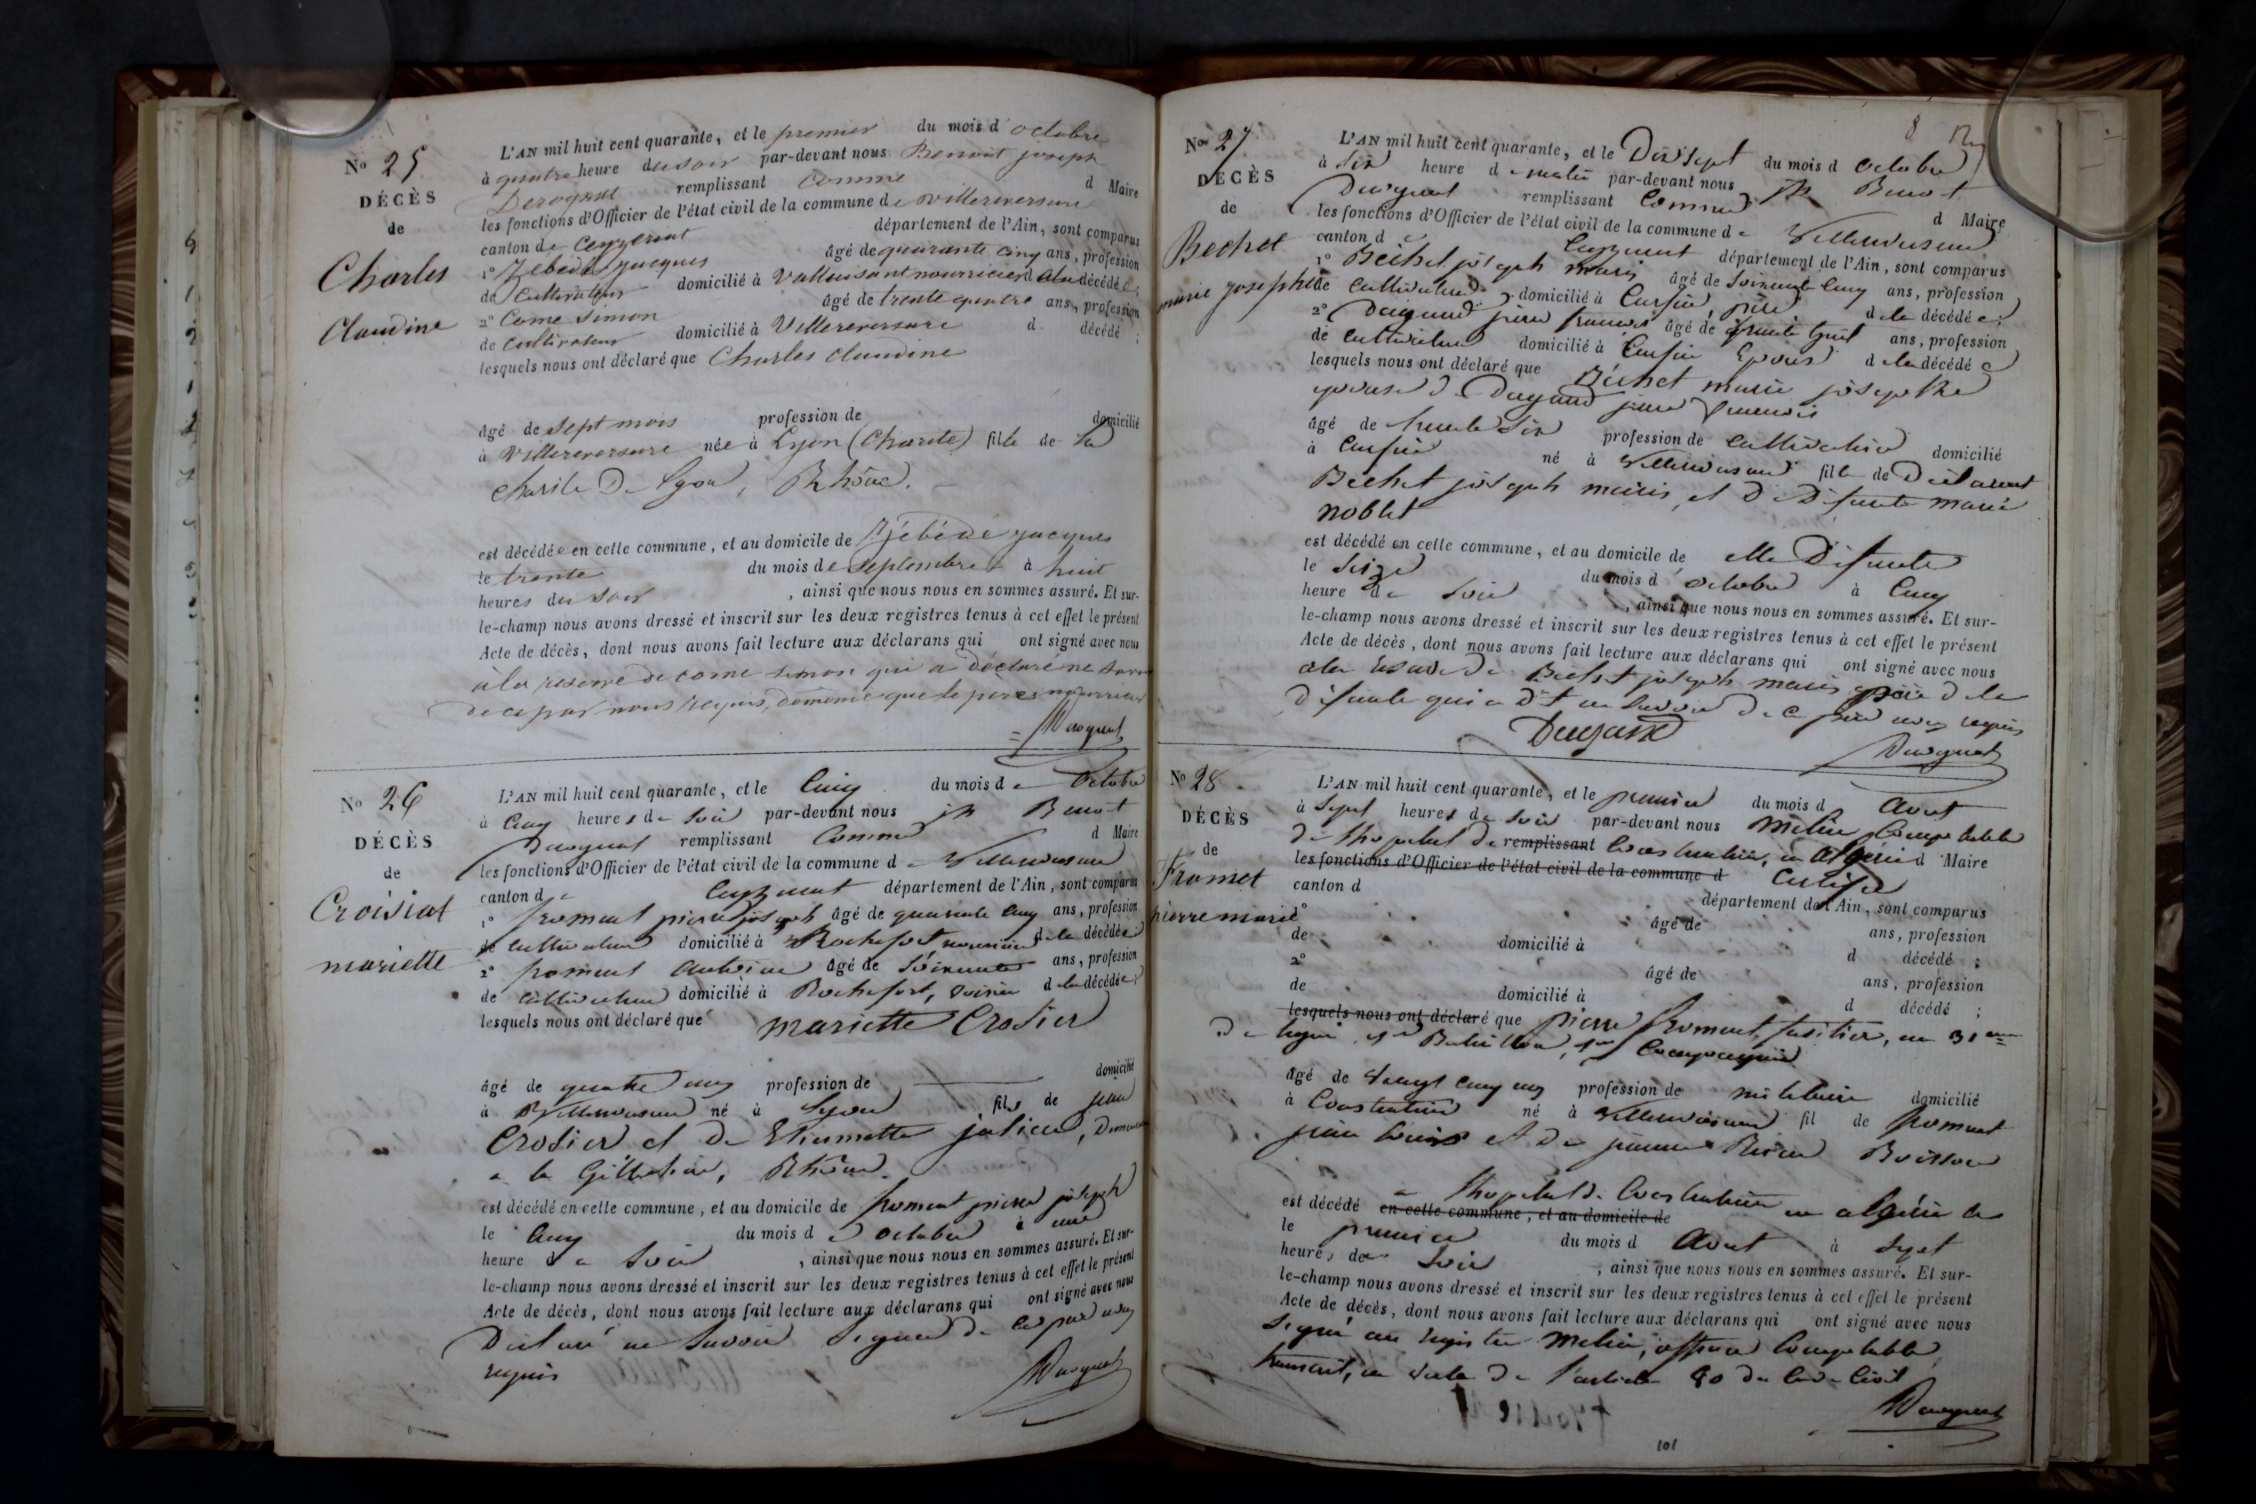 N° 25
DÉCÈS
de
Charles
Claudine
L'AN mil huit cent quarante, et le premier du mois d'octobre
à quatre heure du soir par-devant nous Benoit joseph
remplissant comme d Maire
les fonctions d'Officier de l'état civil de la commune de villereversure
canton de Ceyzeriat département de l'Ain, sont comparus
1° Zébédé jacques âgé de quarante cinq ans, profession
de Cultivateur domicilié à Valluisant nourricier d la décédée;
2° Come Simon âgé de trente quatre ans, profession
de cultivateur domicilié à Villereversure d décédé;
lesquels nous ont déclaré que Charles claudine
âgé de sept mois profession de domicilié
à villereversure née à Lyon (Charité) fille de la
charité De Lyon, Rhône.
est décédée en cette commune, et au domicile de Zébédé jacques
le trente du mois de septembre à huit
heures du soir, ainsi que nous nous en sommes assuré. Et sur-
le-champ nous avons dressé et inscrit sur les deux registres tenus à cet effet le présent
Acte de décès, dont nous avons fait lecture aux déclarans qui ont signé avec nous
à la reserve de come simon qui a déclaré ne savoir
de ce par nous requis, de meme que le pere nourricier
N° 26
DÉCÈS
de
Croisiat
mariette
L'AN mil huit cent quarante, et le Cinq du mois de Octobre
à Cinq heures du Soir par-devant nous jh Benoit
remplissant Comme d Maire
les fonctions d'Officier de l'état civil de la commune de Villereversure
canton de Ceyzeriat département de l'Ain, sont comparus
1° froment pierre joseph âgé de quarante Cinq ans, profession
de cultivateur domicilié à Rochefort nourricier d la décédée;
2° froment Antoine âgé de Soixante ans, profession
de cultivateur domicilié à Rochefort, voisin d la décédée;
lesquels nous ont déclaré que mariette Crosier
âgé de quatre ans profession de domicilié
à Villereversure né à Lyon fils de jean
Crosier et de Etiennette
a la Guillotière, Rhône.
est décédé en cette commune, et au domicile de froment pierre joseph
le Cinq du mois d octobre à une
heure du Soir, ainsi que nous nous en sommes assuré. Et sur-
le-champ nous avons dressé et inscrit sur les deux registres tenus à cet effet le présent
Acte de décès, dont nous avons fait lecture aux déclarans qui ont signé avec nous
Déclaré ne Savoir Signer de ce par nous
requis
8
N° 27
DÉCÈS
de
Bechet
marie josephte
L'AN mil huit cent quarante, et le Dix Sept du mois d octobre
à Six heure d matin par-devant nous jh Benoit
remplissant Comme d Maire
les fonctions d'Officier de l'état civil de la commune de Villereversure
canton d Ceyzeriat département de l'Ain, sont comparus
1° Béchet joseph marie âgé de Soixante Cinq ans, profession
de cultivateur domicilié à, père d la décédée;
2° Dugand pierre francois âgé de ans, profession
de cultivateur domicilié à Epoux d la décédée
lesquels nous ont déclaré que Béchet marie josephte
épouse de Dugand pierre francois
âgé de trente Six profession de cultivatrice domicilié
à né à Villereversure fille de Déclarant
Béchet joseph marie, et de Défunte marie
noblet
est décédé en cette commune, et au domicile de elle Défunte
le Seize du mois d octobre à Cinq
heure du Soir, ainsi que nous nous en sommes assuré. Et sur-
le-champ nous avons dressé et inscrit sur les deux registres tenus à cet effet le présent
Acte de décès, dont nous avons fait lecture aux déclarans qui ont signé avec nous
a la reserve de Béchet joseph marie père d la
défunte qui a dit ne Savoir de ce par nous requis
Dugand
N° 28
DÉCÈS
de
Froment
pierre marie
L'AN mil huit cent quarante, et le premier du mois d Aout
à Sept heures du Soir par-devant nous Melin, Comptable
de lhopital de remplissant Constantine, en algérie d Maire
les fonctions d'Officier de l'état civil de la commune d Certifié
canton d département de l'Ain, sont comparus
1° âgé de ans, profession
de domicilié à d décédé;
2° âgé de ans, profession
de domicilié à d décédé;
lesquels nous ont déclaré que pierre froment, fusilier, au 31eme
de ligne, Bataillon, Compagnie
âgé de vingt cinq ans profession de militaire domicilié
à Constantine né à Villereversure fil de froment
jean louis et de jeanne Boisson
a lhopital de Constantine en algérie
est décédé en cette commune, et au domicile de
le premier du mois d Aout à Sept
heures du Soir, ainsi que nous nous en sommes assuré. Et sur-
le-champ nous avons dressé et inscrit sur les deux registres tenus à cet effet le présent
Acte de décès, dont nous avons fait lecture aux déclarans qui ont signé avec nous
Signé au registre Melin, officier Comptable
transcrit, en vertu de l'article 80 du Code Civil
101